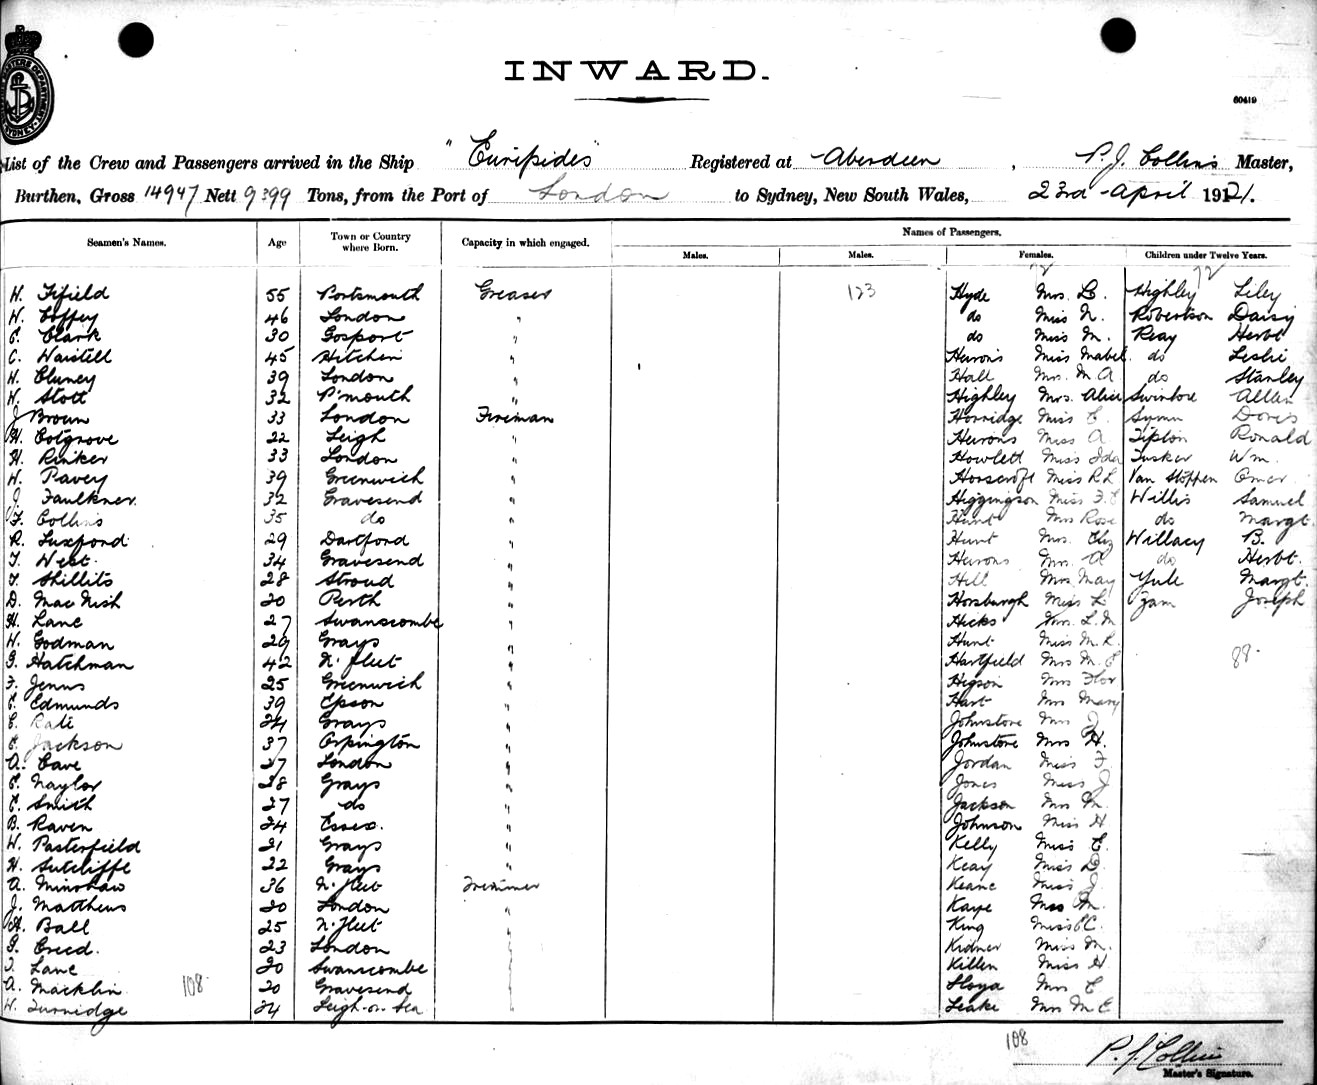 INWARD.
60419
List of the Crew and Passengers arrived in the Ship "Euripides" Registered at Aberdeen, P. J. Collins Master,
Burthen, Gross 14947 Nett 9399 Tons, from the Port of London to Sydney, New South Wales, 23rd April 1921.
Names of Passengers.
Seamen's Names. Age Town or Country where Born. Capacity in which engaged. Males. Males. Females. Children under Twelve Years.
72
H. Fifield 55 Portsmouth Greaser 123 Hyde Mrs. L. Highley Liley
W. Coffey 46 London " do Miss N. Robertson Daisy
E. Clark 30 Gosport " do Miss M. Reay Herbt
C. Waistell 45 Hitchin " Herons Miss Mabel do Leslie
W. Cluney 39 London " Hall Mrs. M A do Stanley
W. Stott 32 P'mouth " Highley Mrs. Alice Swinbore Allen
J. Brown 33 London Fireman Horridge Miss E. Symn Doris
H. Cotgrove 22 Leigh " Herons Miss A. Tipton Ronald
H. Rinker 33 London " Howlett Miss Ida Tusker Wm.
W. Pavey 39 Greenwich " Horscroft Miss R L Van Stoppen Omer
J. Faulkner 32 Gravesend " Higgingson Miss F. E Willis Samuel
F. Collins 35 do " Hunt Mrs Rose do Margt.
R. Luxpond 29 Dartford " Hunt Mrs. Eliz Willacy B.
T. West 34 Gravesend " Herons Mrs. A do Herbt.
T. Shillito 28 Stroud " Hill Mrs. May Yule Margt.
D. Mac Nish 20 Perth " Horsburgh Miss L Zam Joseph
H. Lane 27 Swanscombe " Hicks Mrs. L. M
W. Godman 29 Grays " Hunt Miss M. L.
G. Hatchman 42 N. fleet " Hartfield Mrs M. E 88
F. Jenns 25 Greenwich " Higson Mrs Flor
E. Edmunds 39 Epson " Hart Mrs Mary
E. Rate 24 Grays " Johnstone Mrs J.
E. Jackson 37 Orpington " Johnstone Mrs H.
A. Cave 27 London " Jordan Miss F.
E. Naylor 28 Grays " Jones Miss J
E. Smith 27 do " Jackson Mrs M.
B. Raven 24 Essex. " Johnson Miss H
W. Pasterfield 21 Grays " Kelly Miss E.
H. Sutcliffe 22 Grays " Keay Miss D.
A. Minshaw 36 N. fleet Trimmer Keane Miss J.
J. Matthews 20 London " Kaye Mrs M.
H. Ball 25 N. fleet " King Miss E C.
G. Creed. 23 London " Kidner Miss M.
T. Lane 20 Swanscombe " Killen Miss H
A. Macklin 108 20 Gravesend " Lloya Mrs E
W. Turnidge 24 Leigh-on-Sea " Leake Mrs M E
108
P. J. Collins
Master's Signature.